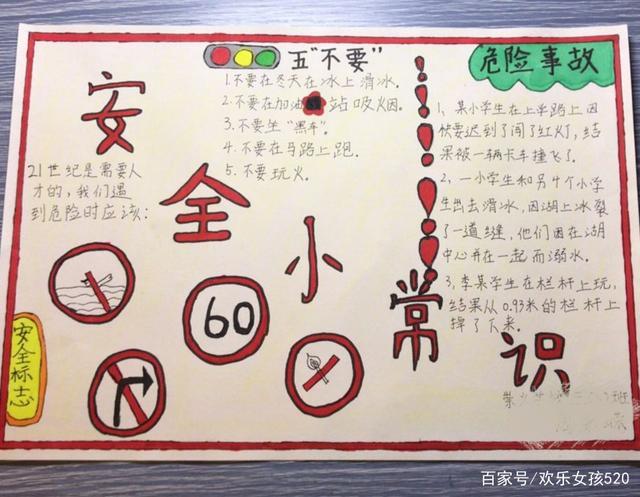 安全小常识
五"不要"
1.不要在冬天在冰上滑冰。
2.不要在加油站吸烟。
3.不要坐"黑车"。
4.不要在马路上跑。
5.不要玩火。
21世纪是需要人
才的，我们遇
到危险时应该：
安全标志
60
危险事故
1、某小学生在上学路上因
快要迟到了闯了红灯，结
果被一辆卡车撞飞了。
2、一小学生和另4个小学
生出去滑冰，因湖上冰裂
了一道缝，他们困在湖
中心并在一起而溺水。
3,李某学生在栏杆上玩，
结果从0.93米的栏杆上
掉了下来。
班
百家号/欢乐女孩520